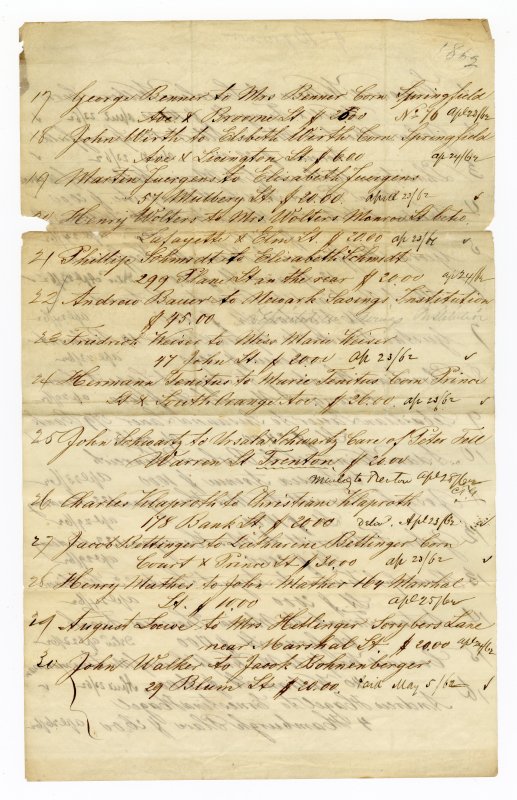 1862
17 George Benner to Mrs Benner Corn Springfield
Ave & Broome St $ 25.00 No 70 apl 23/62
18 John Wirth to Elsbeth Wirth Corn Springfield
Ave & Livington St. $ 6.00 ap 24/62
19 Martin Juergens to Elisabeth Juergens
57 Mulbery St. $ 20.00. april 23/62
20 Henry Wolters to Mrs Wolters Monroe St. betw.
Lafayette & Elm St. $ 20.00 ap 23/62
21 Phillip Schmidt to Elisabeth Schmidt
299 Plane St in the rear $ 20.00 apl 24/62
22 Andrew Bauer to Newark Savings Institution
$ 45.00
23 Friedrich Weiser to Miss Marie Weiser
47 John St. $ 20.00 ap 23/62
24 Hermann Tenitus to Marie Tenitus Corn Prince
St & South Orange Ave. $ 20.00. ap 23/62
25 John Schwartz to Ursula Schwartz Care of Peter Fell
Warren St Trenton $ 20.00
mailed to Trenton apl 25/62
26 Charles Klaproth to Christiane Klaproth
178 Bank St. $ 20.00 Delv Apl 23/62
27 Jacob Rettinger to Catharine Rettinger Corn
Court & Prince St $ 30.00 ap 23/62
28 Henry Mather to John Mather 164 Marshal
St. $ 10.00 apl 25/62
29 August Loewe to Mrs Hetlinger Torybers Lane
near Marshal St. $ 20.00 apl 24/62
30 John Walker to Jacob Bohnenberger
29 Blum St $ 20.00. Paid May 5/62